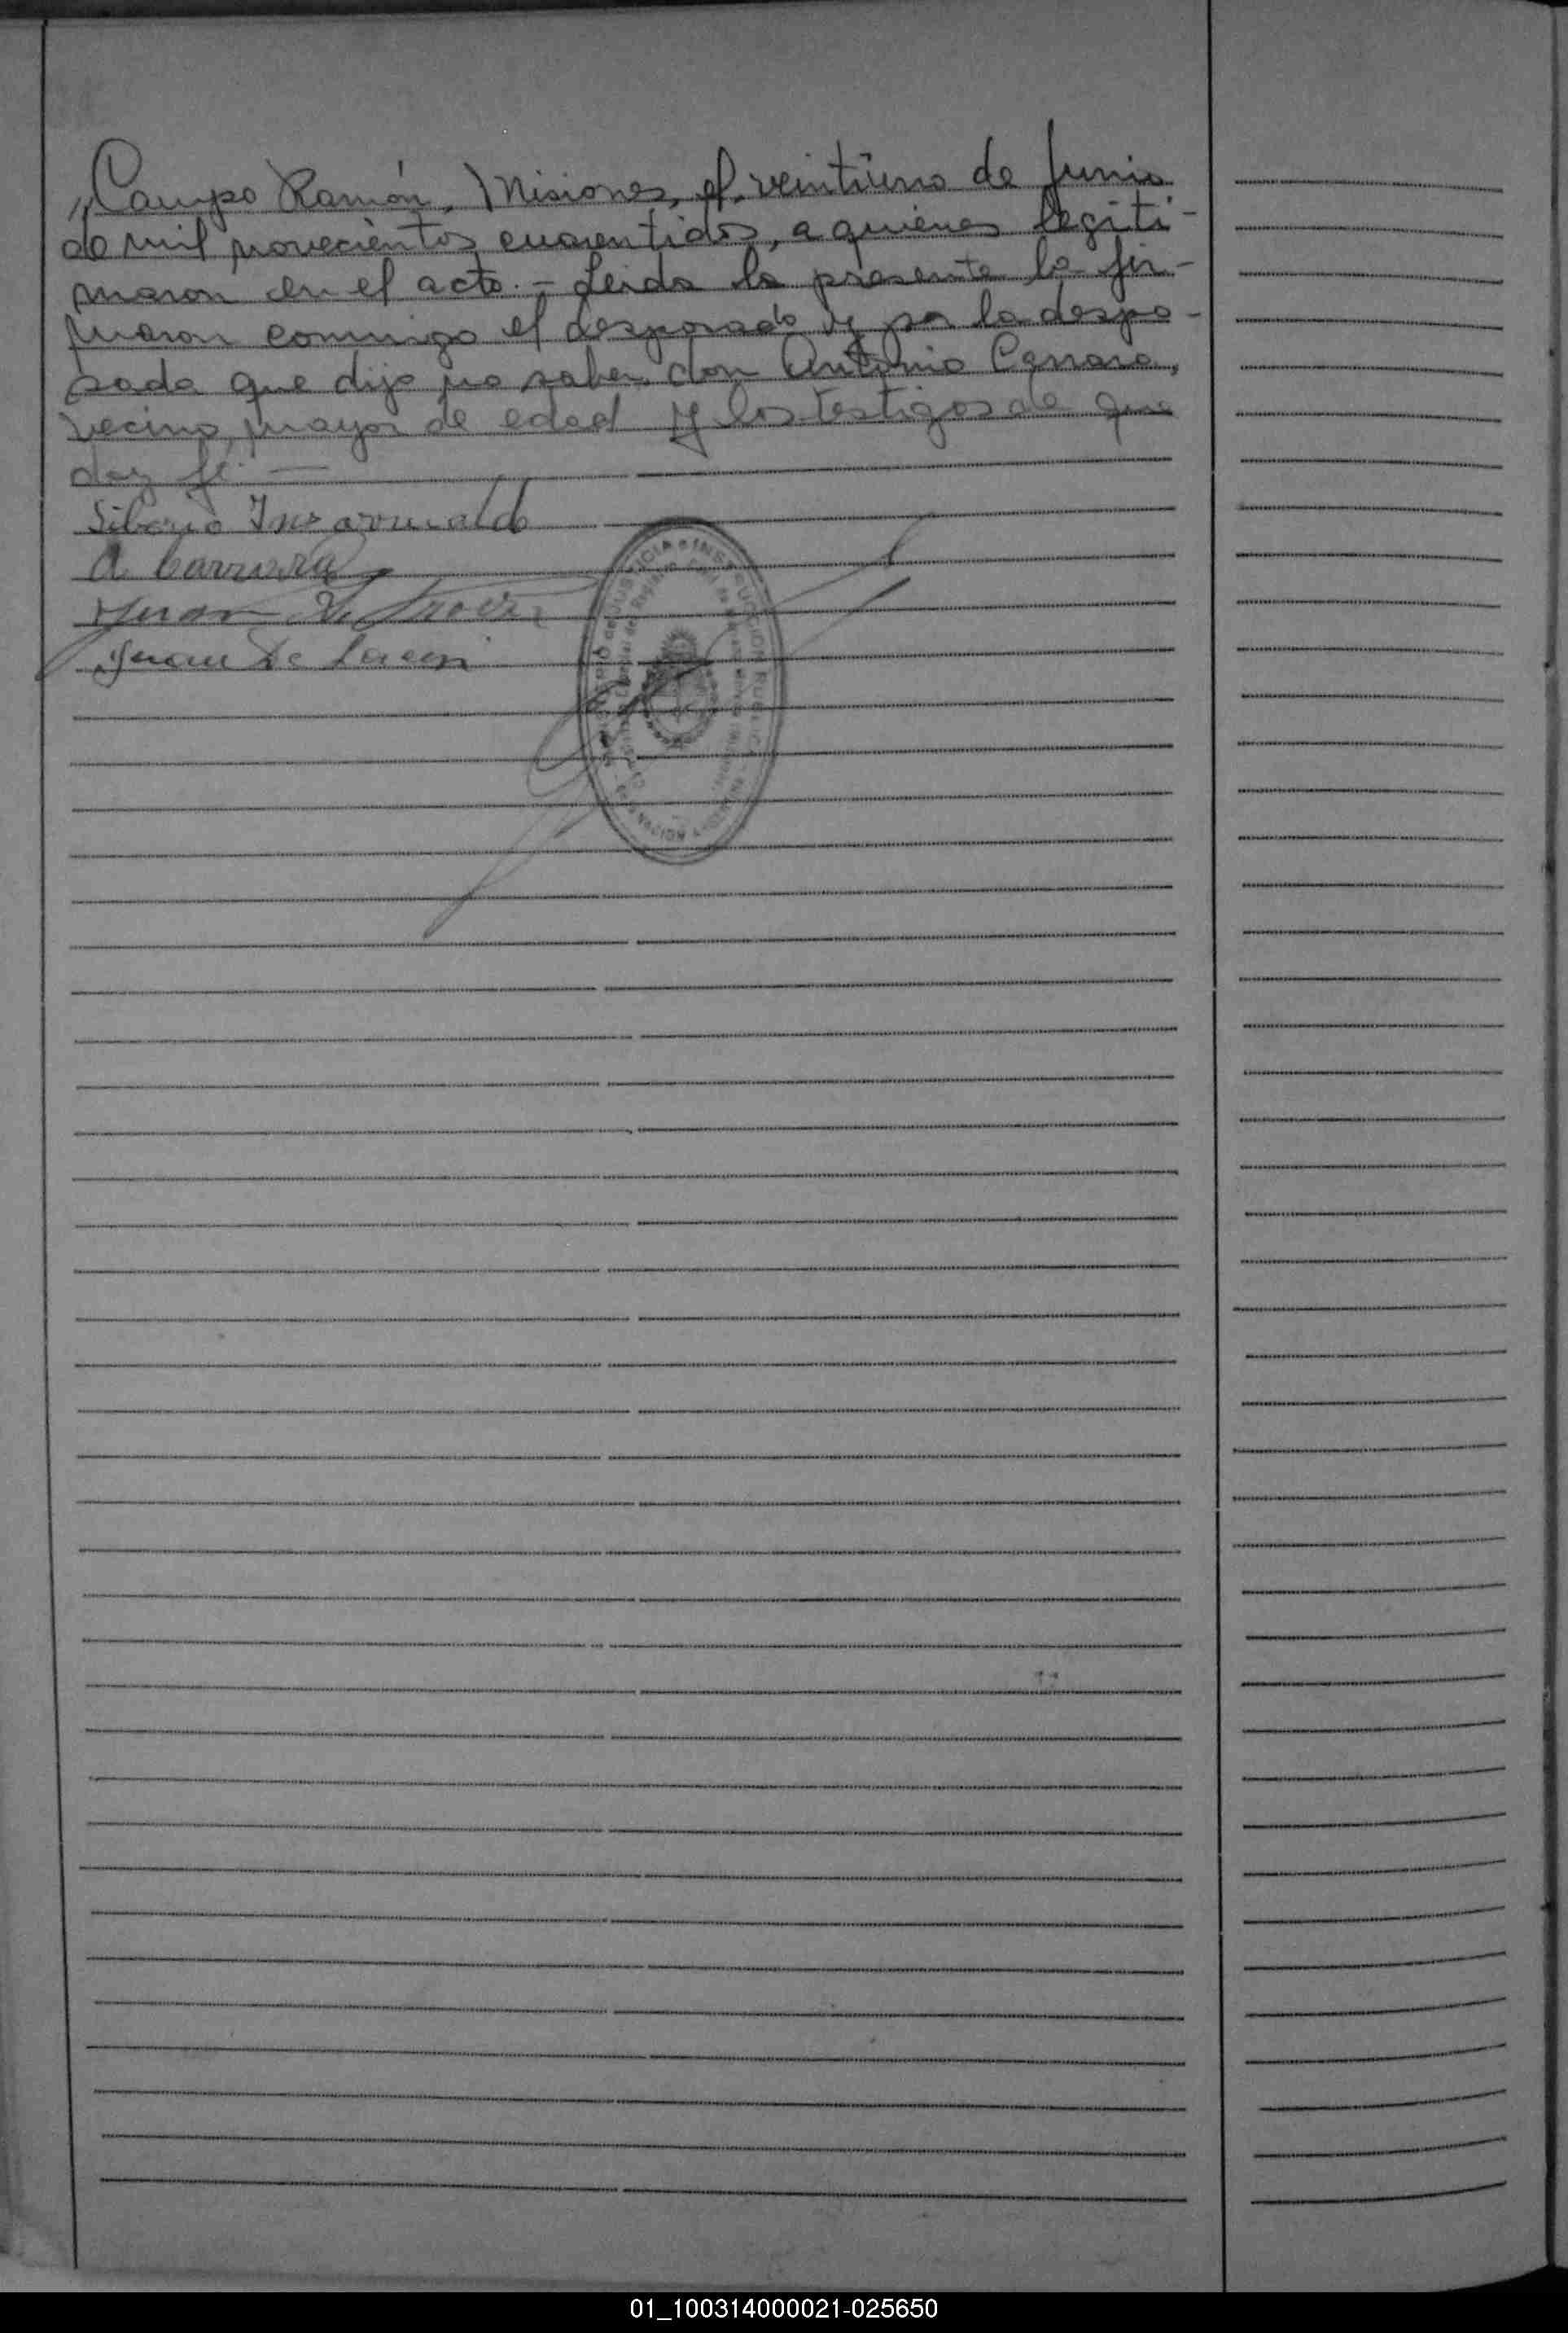 "Campo Ramón, Misiones, el veintiuno de Junio
de mil novecientos cuarentidos, a quienes legiti-
maron en el acto.- Leida la presente la fir-
maron conmigo el desposado y por la despo-
sada que dijo no saber don Antonio Carrara,
vecino, mayor de edad y los testigos de que
doy fé.—
Liborio
A Carrara
Juan
Juan De
JUSTICIA e INSTRUCCION PUBLICA
01_100314000021-025650